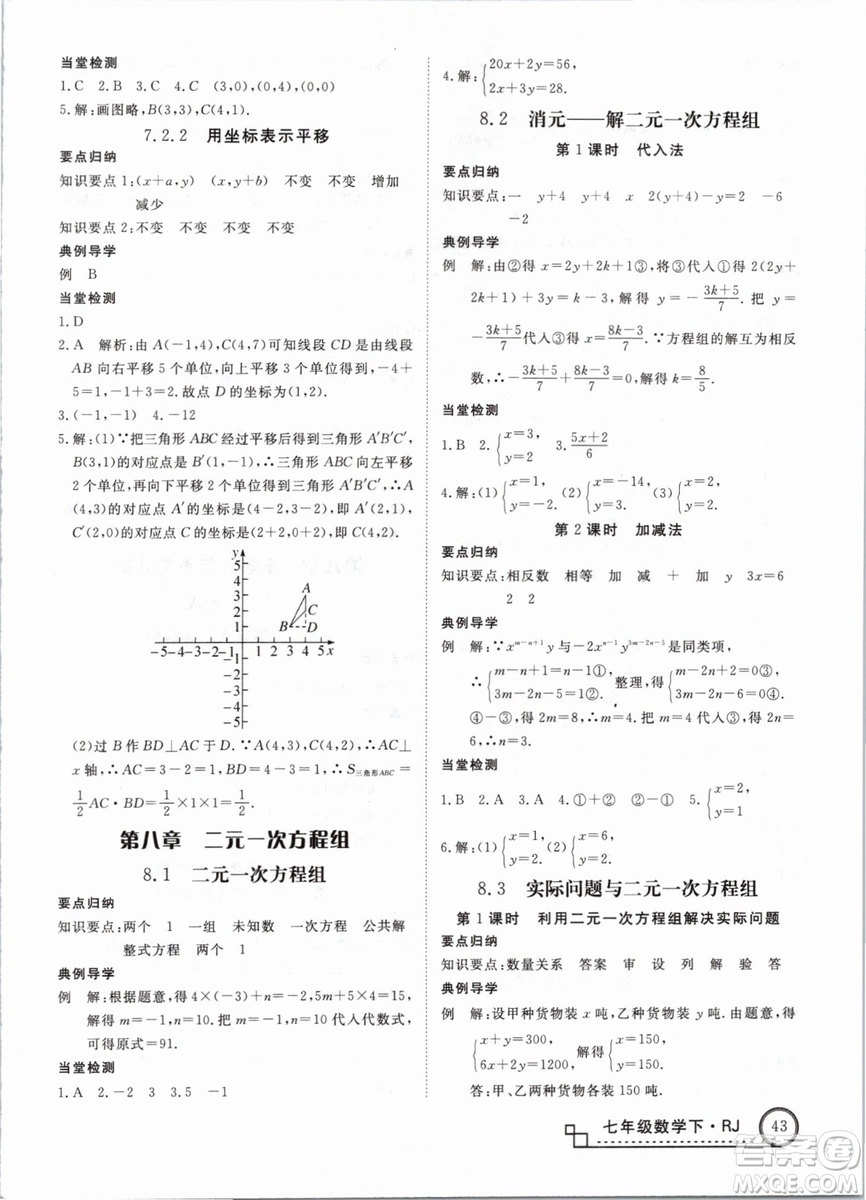 当堂检测
1.C 2.B 3.C 4.C (3,0),(0,4),(0,0)
5.解:画图略,B(3,3),C(4,1).
7.2.2 用坐标表示平移
要点归纳
知识要点1:(x+a,y) (x,y+b) 不变 不变 增加
减少
知识要点2:不变 不变 不变 不变
典例导学
例 B
当堂检测
1.D
2.A 解析:由A(-1,4),C(4,7)可知线段CD是由线段
AB向右平移5个单位,向上平移3个单位得到的,-4+5
=1,-1+3=2.故点D的坐标为(1,2).
3.(-1,-1) 4.-12
5.解:(1)∵把三角形ABC经过平移后得到三角形A′B′C′,
B(3,1)的对应点是B′(1,-1),∴三角形ABC向左平移
2个单位,再向下平移2个单位得到三角形A′B′C′,∴A
(4,3)的对应点A′的坐标是(4-2,3-2),即A′(2,1),
C′(2,0)的对应点C的坐标是(2+2,0+2),即C(4,2).
y
5
4
3
2
1
A
C
B
D
-5-4-3-2-1 1 2 3 4 5 x
-1
-2
-3
-4
-5
(2)过B作BD⊥AC于D.∵A(4,3),C(4,2),∴AC⊥
x轴,∴AC=3-2=1,BD=4-3=1,∴S三角形ABC=
1/2 AC·BD=1/2×1×1=1/2.
第八章 二元一次方程组
8.1 二元一次方程组
要点归纳
知识要点:两个 1 一组 未知数 一次方程 公共解
整式方程 两个 1
典例导学
例 解:根据题意,得4×(-3)+n=-2,5m+5×4=15,
解得m=-1,n=10.将m=-1,n=10代入代数式,
可得原式=91.
当堂检测
1.A 2.-2 3 3.5 -1
4.解:{20x+2y=56,
2x+3y=28.
8.2 消元——解二元一次方程组
第1课时 代入法
要点归纳
知识要点:一 y+4 y+4 x 2y=2 -6
-2
典例导学
例 解:由②得x=2y+2k+1③,将③代入①得2(2y+
2k+1)+3y=k-3,解得y=-(3k+5)/7.把y=
-(3k+5)/7代入③,得x=(8k-3)/7.∵方程组的解互为相反
数,∴-(3k+5)/7+(8k-3)/7=0,解得k=8/5.
当堂检测
1.B 2.{x=3, y=2 3.(5x+2)/6
4.解:(1){x=1, y=-2. (2){x=14, y=2.
第2课时 加减法
要点归纳
知识要点:相反数 相等 加 减 + 加 y 3x=6
2 2
典例导学
例 解:∵x^(m-n+1)y与-2x^(n-1)y^(3m-2n-5)是同类项,
∴{m-n+1=n-1①, 3m-2n-5=1②. 整理,得{m-2n+2=0③, 3m-2n-6=0④.
④-③,得2m=8,解得m=4.将m=4代入③,得2n
=6,解得n=3.
当堂检测
1.B 2.A 3.A 4.①+② ②-① 5.{x=2, y=1
6.解:(1){x=2, y=2. (2){x=2, y=1.
8.3 实际问题与二元一次方程组
第1课时 利用二元一次方程组解决实际问题
要点归纳
知识要点:数量关系 答案 审 设 列 解 验 答
典例导学
例 解:设甲种货物装x吨,乙种货物装y吨.由题意,得
{x+y=300, 6x+2y=1200, 解得{x=150, y=150.
答:甲、乙两种货物各装150吨.
七年级数学下·RJ 43
答案圈
MXQE.COM